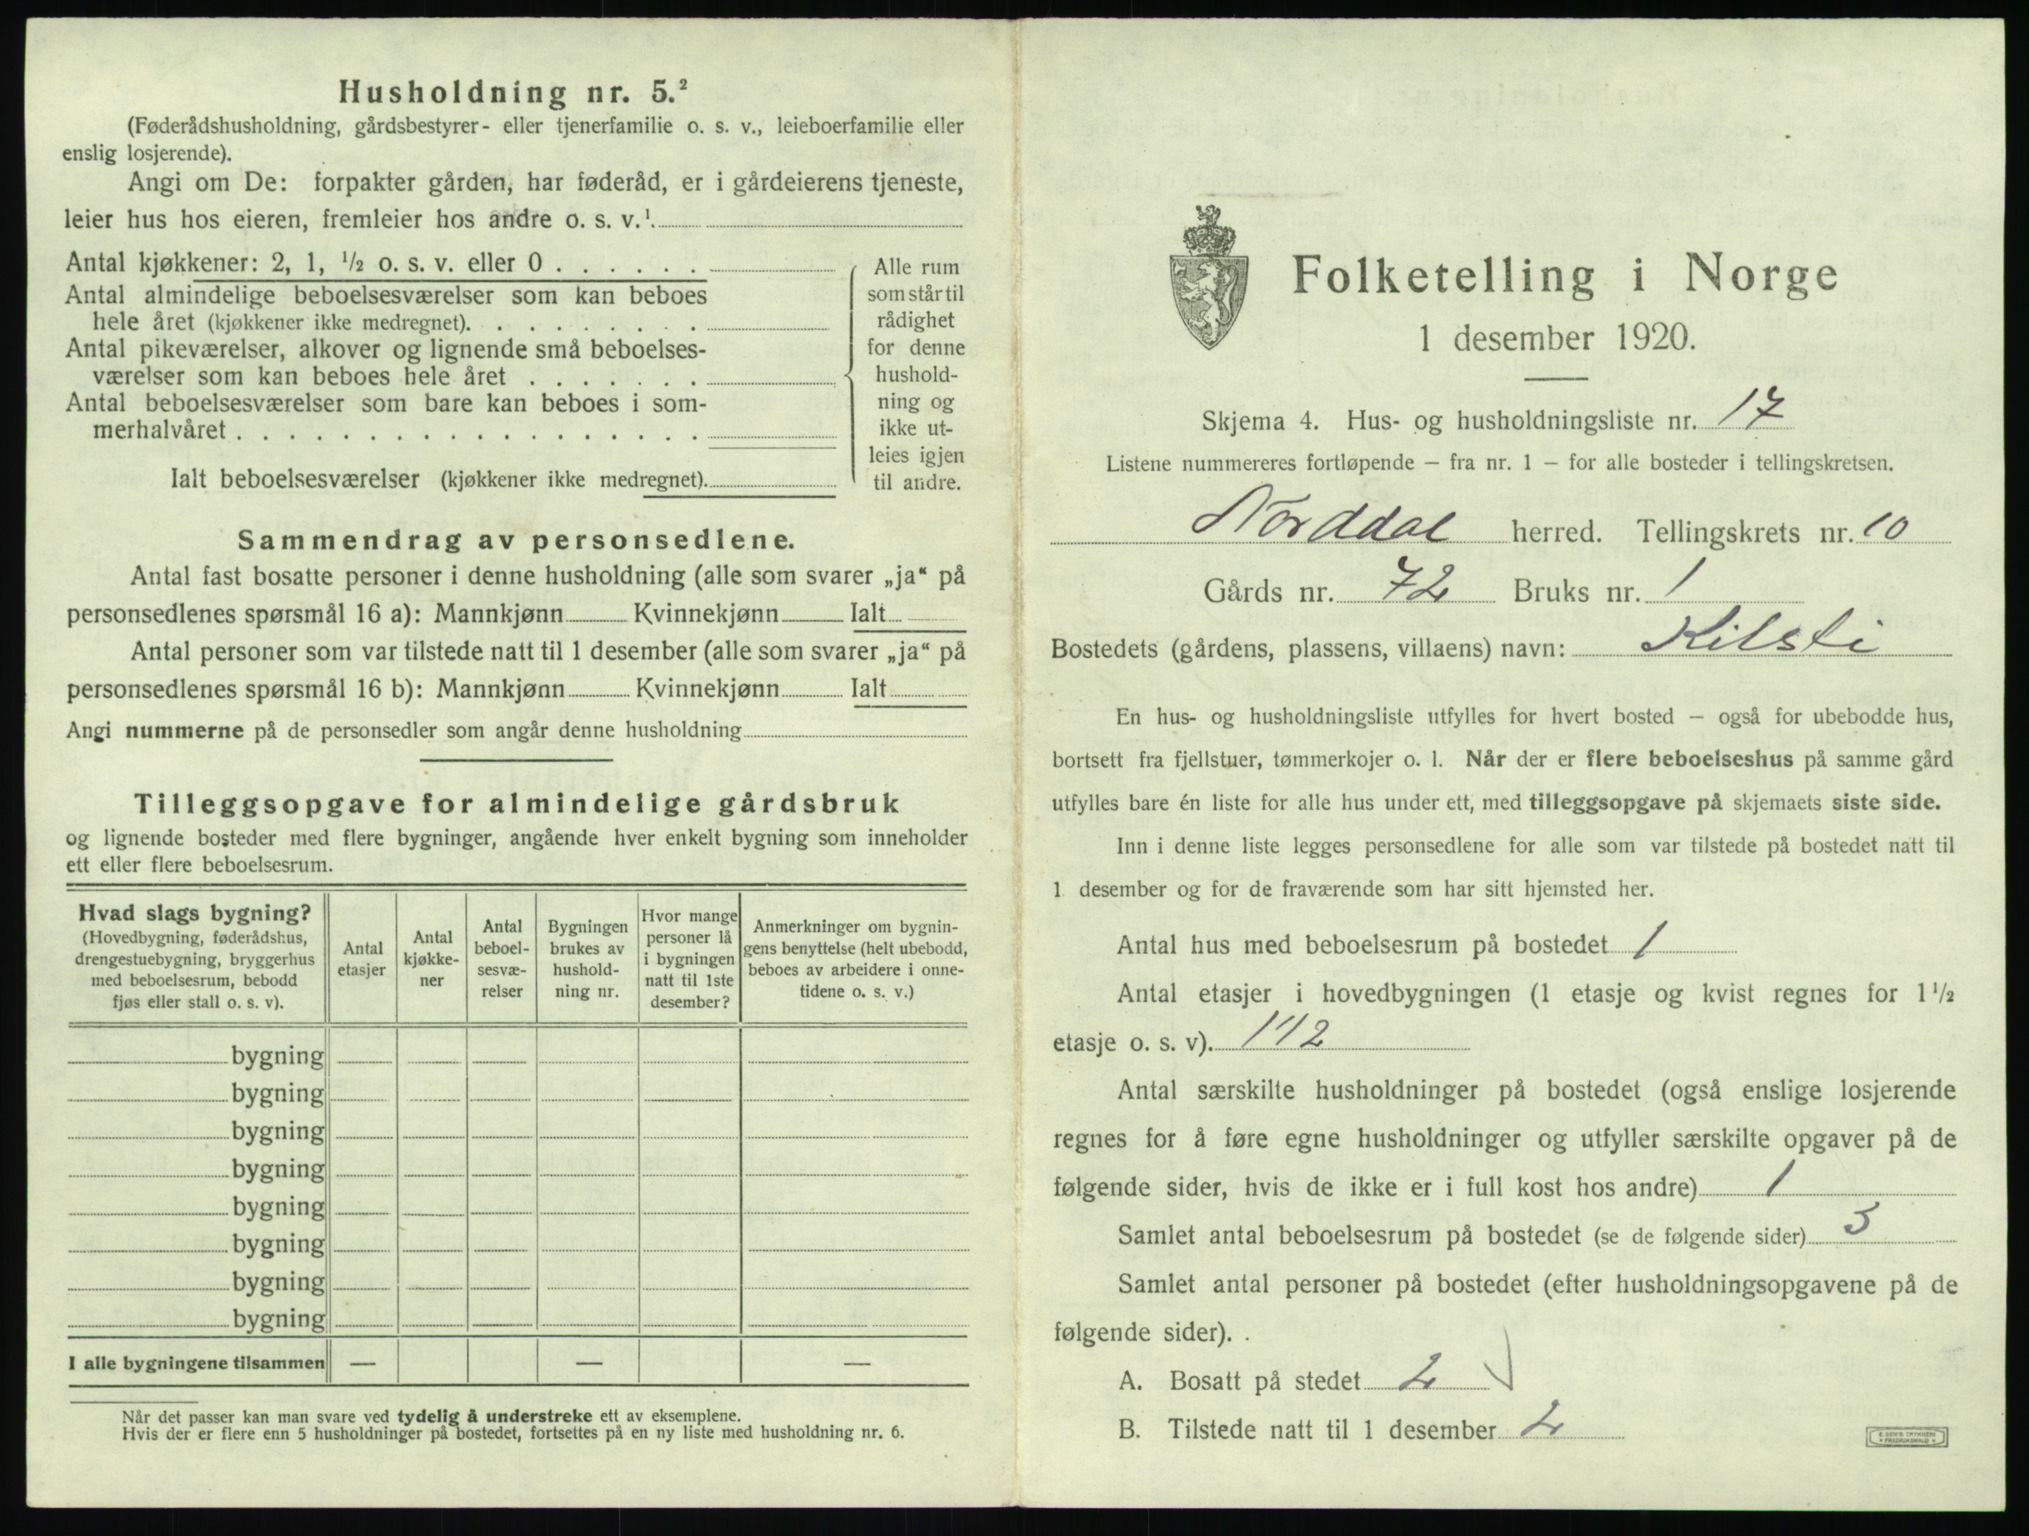 Husholdning nr. 5.²
(Føderådshusholdning, gårdsbestyrer- eller tjenerfamilie o. s. v., leieboerfamilie eller
enslig losjerende).
Angi om De: forpakter gården, har føderåd, er i gårdeierens tjeneste,
leier hus hos eieren, fremleier hos andre o. s. v.¹
Antal kjøkkener: 2, 1, ½ o. s. v. eller 0 . . . . . .
Antal almindelige beboelsesværelser som kan beboes
hele året (kjøkkener ikke medregnet). . . . . . . . .
Antal pikeværelser, alkover og lignende små beboelses-
værelser som kan beboes hele året . . . . . . .
Antal beboelsesværelser som bare kan beboes i som-
merhalvåret . . . . . . . . . . . . . . . . .
Ialt beboelsesværelser (kjøkkener ikke medregnet).
Alle rum
som står til
rådighet
for denne
hushold-
ning og
ikke ut-
leies igjen
til andre.
Sammendrag av personsedlene.
Antal fast bosatte personer i denne husholdning (alle som svarer „ja“ på
personsedlenes spørsmål 16 a): Mannkjønn Kvinnekjønn Ialt
Antal personer som var tilstede natt til 1 desember (alle som svarer „ja“ på
personsedlenes spørsmål 16 b): Mannkjønn Kvinnekjønn Ialt
Angi nummerne på de personsedler som angår denne husholdning
Tilleggsopgave for almindelige gårdsbruk
og lignende bosteder med flere bygninger, angående hver enkelt bygning som inneholder
ett eller flere beboelsesrum.
Hvad slags bygning?
(Hovedbygning, føderådshus,
drengestuebygning, bryggerhus
med beboelsesrum, bebodd
fjøs eller stall o. s. v).
Antal
etasjer
Antal
kjøkke-
ner
Antal
beboel-
sesvæ-
relser
Bygningen
brukes av
hushold-
ning nr.
Hvor mange
personer lå
i bygningen
natt til 1ste
desember?
Anmerkninger om bygnin-
gens benyttelse (helt ubebodd,
beboes av arbeidere i onne-
tidene o. s. v.)
bygning
bygning
bygning
bygning
bygning
bygning
bygning
bygning
I alle bygningene tilsammen — — —
Når det passer kan man svare ved tydelig å understreke ett av eksemplene.
Hvis der er flere enn 5 husholdninger på bostedet, fortsettes på en ny liste med husholdning nr. 6.
Folketelling i Norge
1 desember 1920.
Skjema 4. Hus- og husholdningsliste nr. 17
Listene nummereres fortløpende – fra nr. 1 – for alle bosteder i tellingskretsen.
Norddal herred. Tellingskrets nr. 10
Gårds nr. 72 Bruks nr. 1
Bostedets (gårdens, plassens, villaens) navn: Kilsti
En hus- og husholdningsliste utfylles for hvert bosted – også for ubebodde hus,
bortsett fra fjellstuer, tømmerkojer o. l. Når der er flere beboelseshus på samme gård
utfylles bare én liste for alle hus under ett, med tilleggsopgave på skjemaets siste side.
Inn i denne liste legges personsedlene for alle som var tilstede på bostedet natt til
1 desember og for de fraværende som har sitt hjemsted her.
Antal hus med beboelsesrum på bostedet 1
Antal etasjer i hovedbygningen (1 etasje og kvist regnes for 1 ½
etasje o. s. v). 1 1/2
Antal særskilte husholdninger på bostedet (også enslige losjerende
regnes for å føre egne husholdninger og utfyller særskilte opgaver på de
følgende sider, hvis de ikke er i full kost hos andre) 1
Samlet antal beboelsesrum på bostedet (se de følgende sider) 3
Samlet antal personer på bostedet (efter husholdningsopgavene på de
følgende sider). .
A. Bosatt på stedet 2
B. Tilstede natt til 1 desember 2